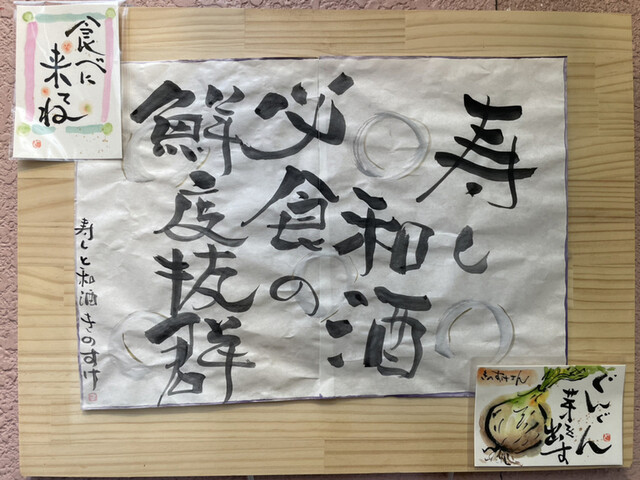 食べに
来てね
寿し
和酒
父食の
鮮度抜群
寿しと和酒 きのすけ
ぐんぐん
芽を出す